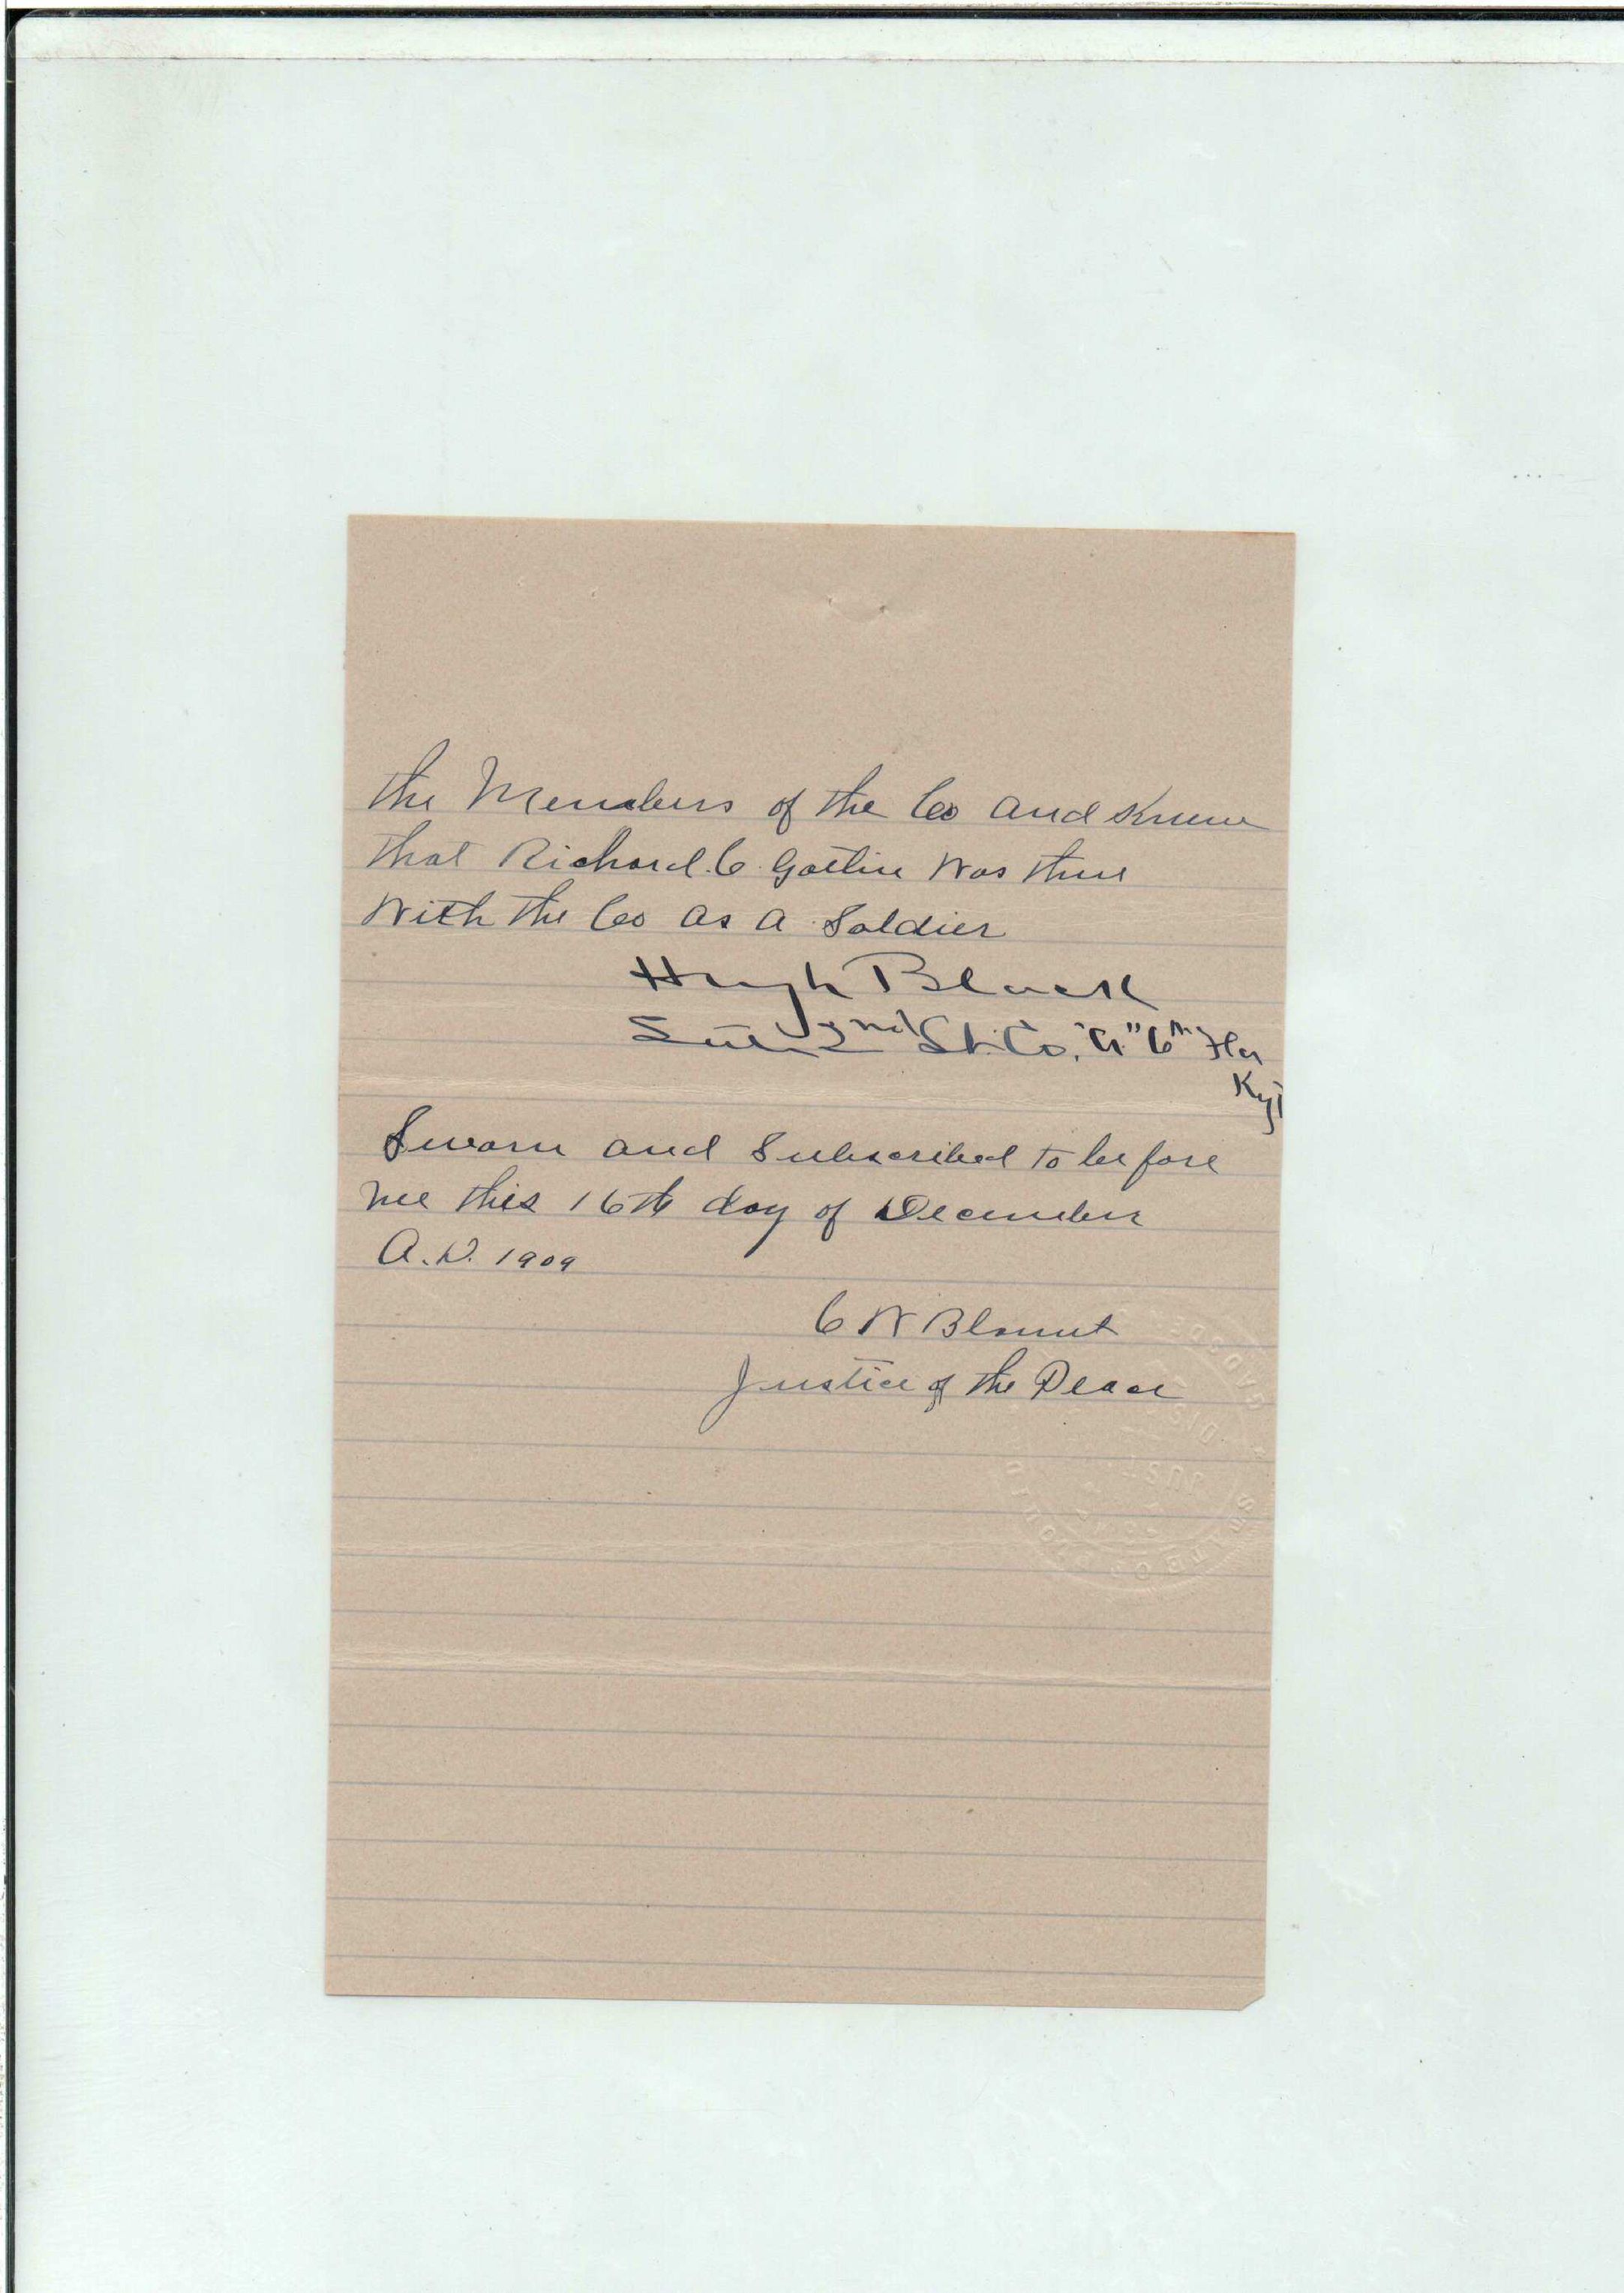 the Members of the Co and Knew
that Richard C Gatlin was there
with the Co as a Soldier
Hugh Black
2nd Lt. Co. 6th Fla
Sworn and Subscribed to before
me this 16th day of December
A.D. 1909
C W Blount
Justice of the Peace